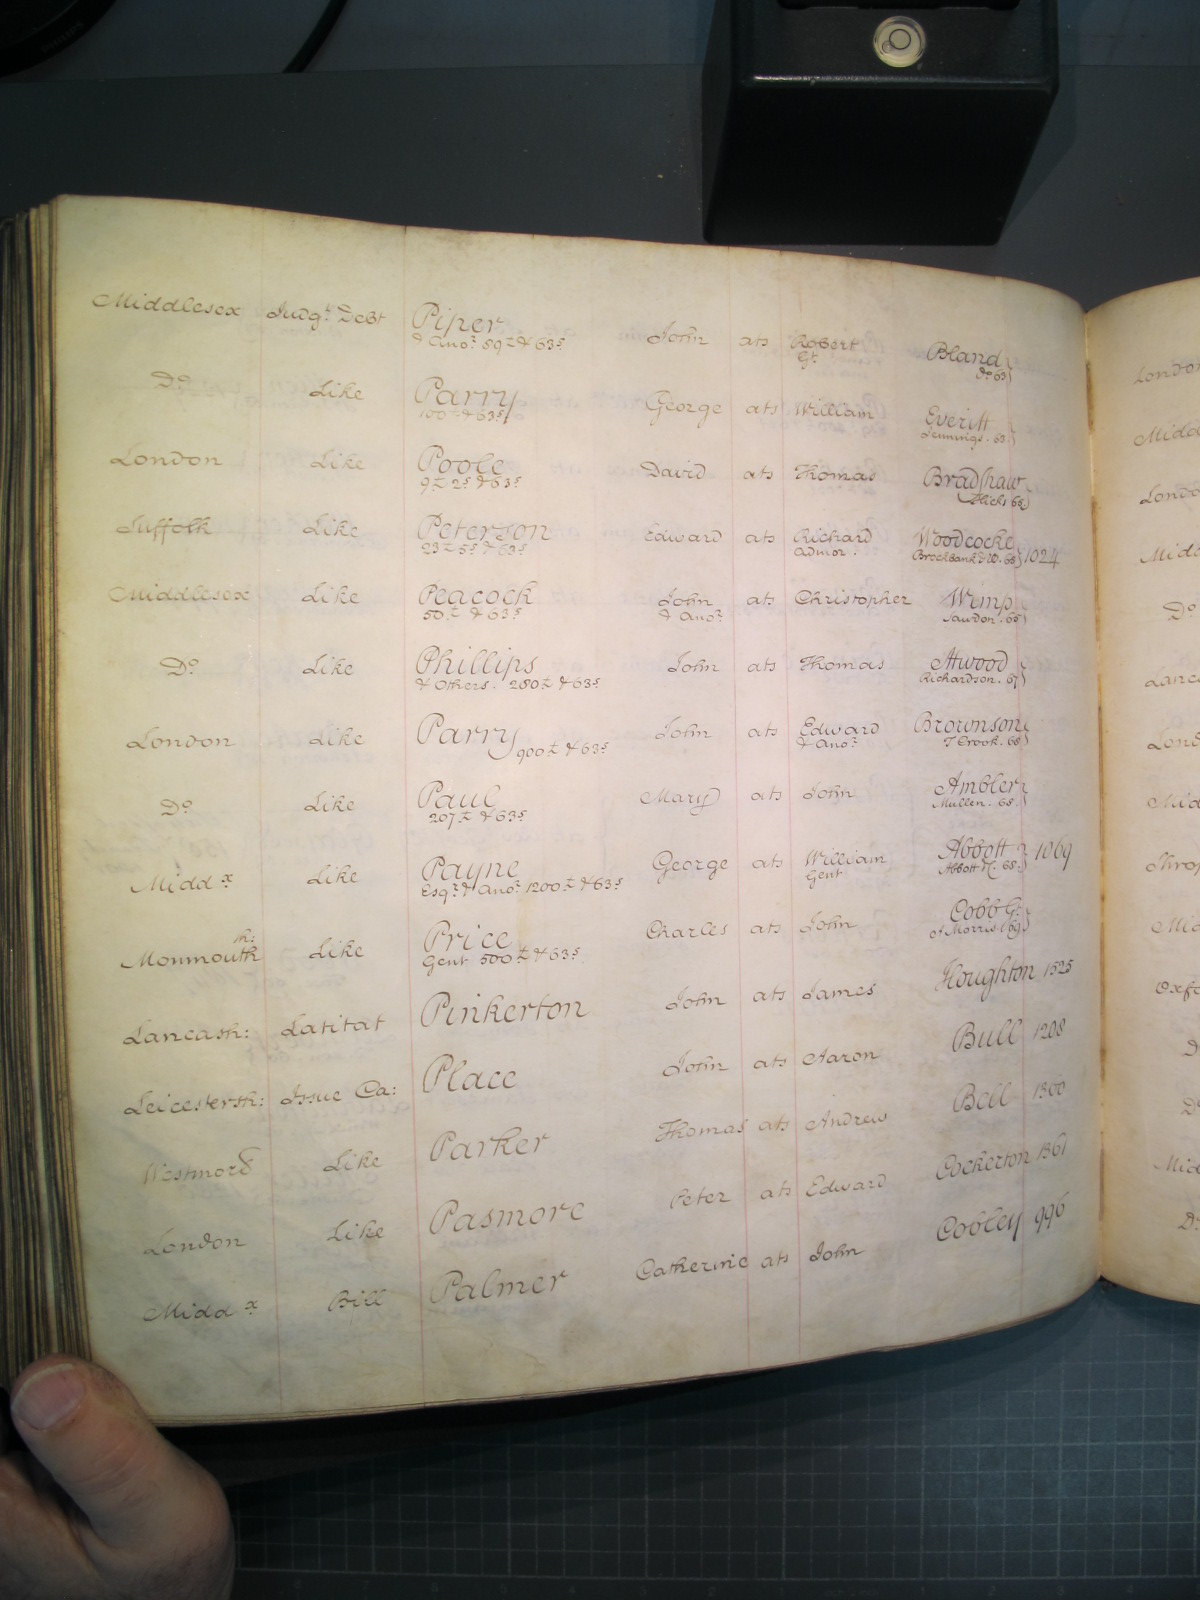 Middlesex Judgt. Debt Piper John ats Robert Bland
& Anor. 89£ & 63s Gt. Do 63
Do. Like Parry George ats William Everitt
100£ & 63s Jennings. 63
London Like Poole David ats Thomas Bradshaw
9£ 2s & 63s
Suffolk Like Peterson Edward ats Richard Woodcocke
23£ 5s & 63s Admor. 1024
Middlesex Like Peacock John ats Christopher Wimp
50£ & 63s & Anor.
Do. Like Phillips John ats Thomas Attwood
& Others. 280£ & 63s Richardson. 67
London Like Parry John ats Edward Brownson
900£ & 63s & Anor. T Crook. 68
Do. Like Paul Mary ats John Ambler
207£ & 63s Mullen. 68.
Middx Like Payne George ats William Abbott 1069
Esqr. & Anor. 1200£ & 63s Gent Abbott 68
Monmouth Like Price Charles ats John Cobb Gt.
Gent 500£ & 63s Morris 69
Lancash: Latitat Pinkerton John ats James Houghton 1525
Leicestersh: Issue Ca: Place John ats Aaron Bull 1208
Westmord Like Parker Thomas ats Andrew Bell 1360
London Like Pasmore Peter ats Edward Cockerton 1361
Middx Bill Palmer Catherine ats John Cobley 996
London
Midd
Londo
Mid
Do
Lanca
Lond
Mid
Shrop
Mid
Oxfo
D
Do
Mid
D.